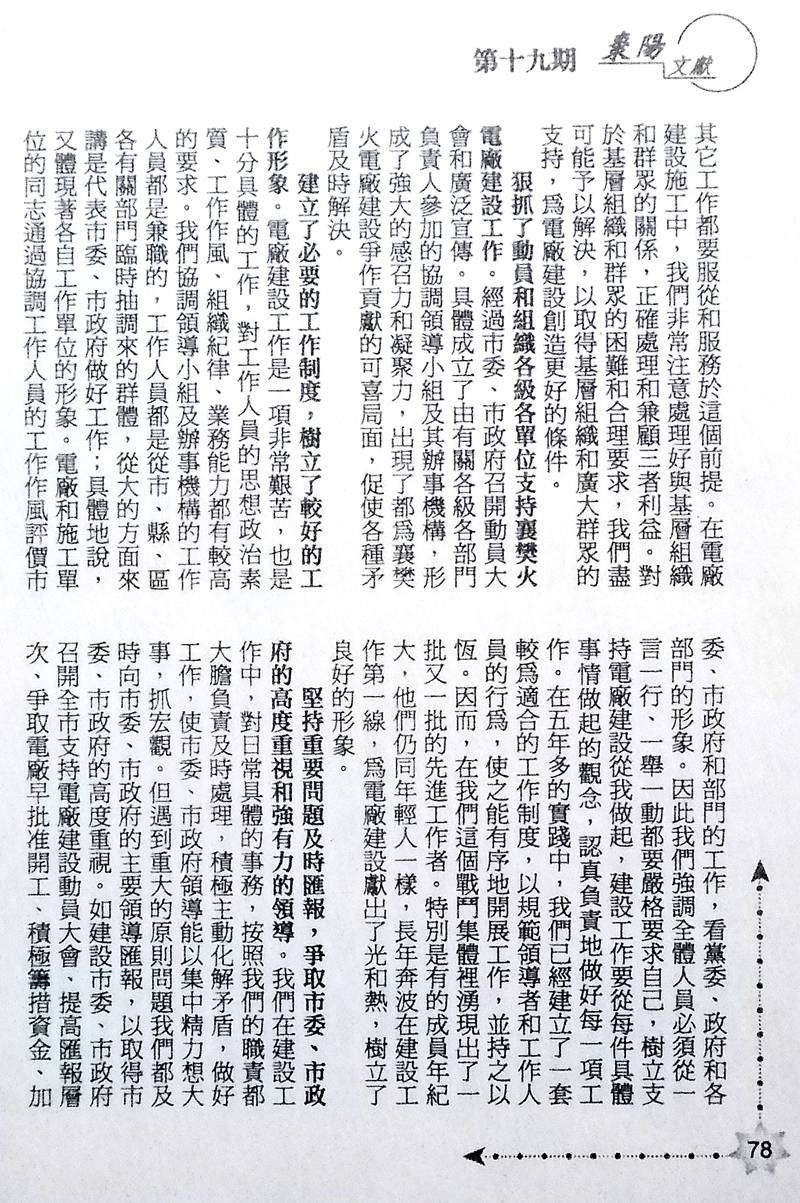 第十九期
棗陽
文獻
其它工作都要服從和服務於這個前提。在電廠
建設施工中，我們非常注意處理好與基層組織
和群眾的關係，正確處理和兼顧三者利益。對
於基層組織和群眾的困難和合理要求，我們盡
可能予以解決，以取得基層組織和廣大群眾的
支持，爲電廠建設創造更好的條件。
狠抓了動員和組織各級各單位支持襄樊火
電廠建設工作。經過市委、市政府召開動員大
會和廣泛宣傳。具體成立了由有關各級各部門
負責人參加的協調領導小組及其辦事機構，形
成了強大的感召力和凝聚力，出現了都爲襄樊
火電廠建設爭作貢獻的可喜局面，促使各種矛
盾及時解決。
建立了必要的工作制度，樹立了較好的工
作形象。電廠建設工作是一項非常艱苦，也是
十分具體的工作，對工作人員的思想政治素
質、工作作風、組織紀律、業務能力都有較高
的要求。我們協調領導小組及辦事機構的工作
人員都是兼職的，工作人員都是從市、縣、區
各有關部門臨時抽調來的群體，從大的方面來
講是代表市委、市政府做好工作；具體地說，
又體現著各自工作單位的形象。電廠和施工單
位的同志通過協調工作人員的工作作風評價市
委、市政府和部門的工作，看黨委、政府和各
部門的形象。因此我們強調全體人員必須從一
言一行、一舉一動都要嚴格要求自己，樹立支
持電廠建設從我做起，建設工作要從每件具體
事情做起的觀念，認真負責地做好每一項工
作。在五年多的實踐中，我們已經建立了一套
較爲適合的工作制度，以規範領導者和工作人
員的行爲，使之能有序地開展工作，並持之以
恆。因而，在我們這個戰鬥集體裡湧現出了一
批又一批的先進工作者。特別是有的成員年紀
大，他們仍同年輕人一樣，長年奔波在建設工
作第一線，爲電廠建設獻出了光和熱，樹立了
良好的形象。
堅持重要問題及時匯報，爭取市委、市政
府的高度重視和強有力的領導。我們在建設工
作中，對日常具體的事務，按照我們的職責都
大膽負責及時處理，積極主動化解矛盾，做好
工作，使市委、市政府領導能以集中精力想大
事，抓宏觀。但遇到重大的原則問題我們都及
時向市委、市政府的主要領導匯報，以取得市
委、市政府的高度重視。如建設市委、市政府
召開全市支持電廠建設動員大會、提高匯報層
次、爭取電廠早批准開工、積極籌措資金、加
78